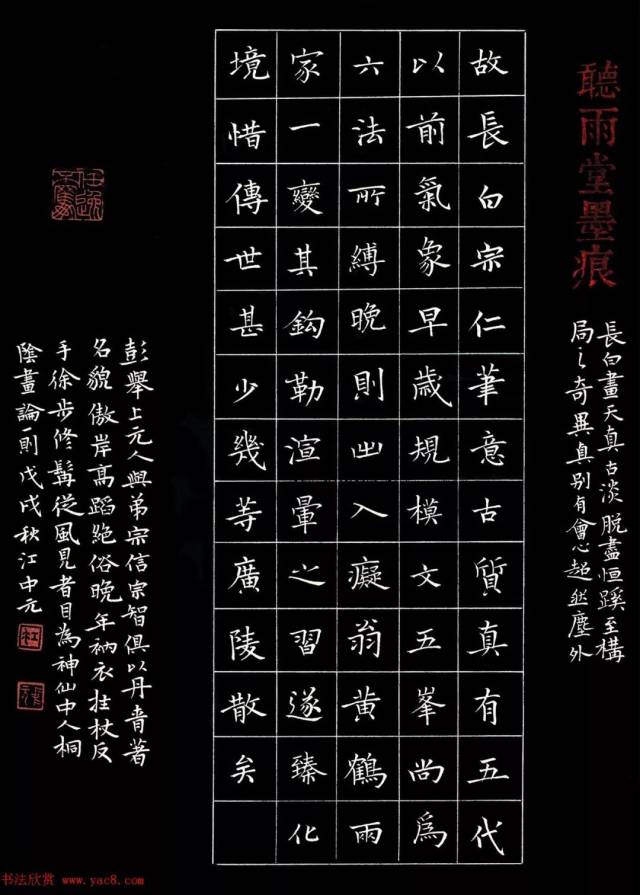 聽雨堂墨痕
長白畫天真古淡脫盡恒蹊至構
局之奇異真别有會心超然塵外
故長白宗仁筆意古質真有五代
以前氣象早歲規模文五峯尚爲
六法所縛晚則出入癡翁黃鶴兩
家一變其鈎勒渲暈之習遂臻化
境惜傳世甚少幾等廣陵散矣
彭舉上元人與弟宗信宗智俱以丹青著
名貌傲岸高蹈絶俗晚年衲衣拄杖反
手徐步修髯從風見者目為神仙中人桐
陰畫論一則戊戌秋江中元
江
书法欣赏 www.yac8.com